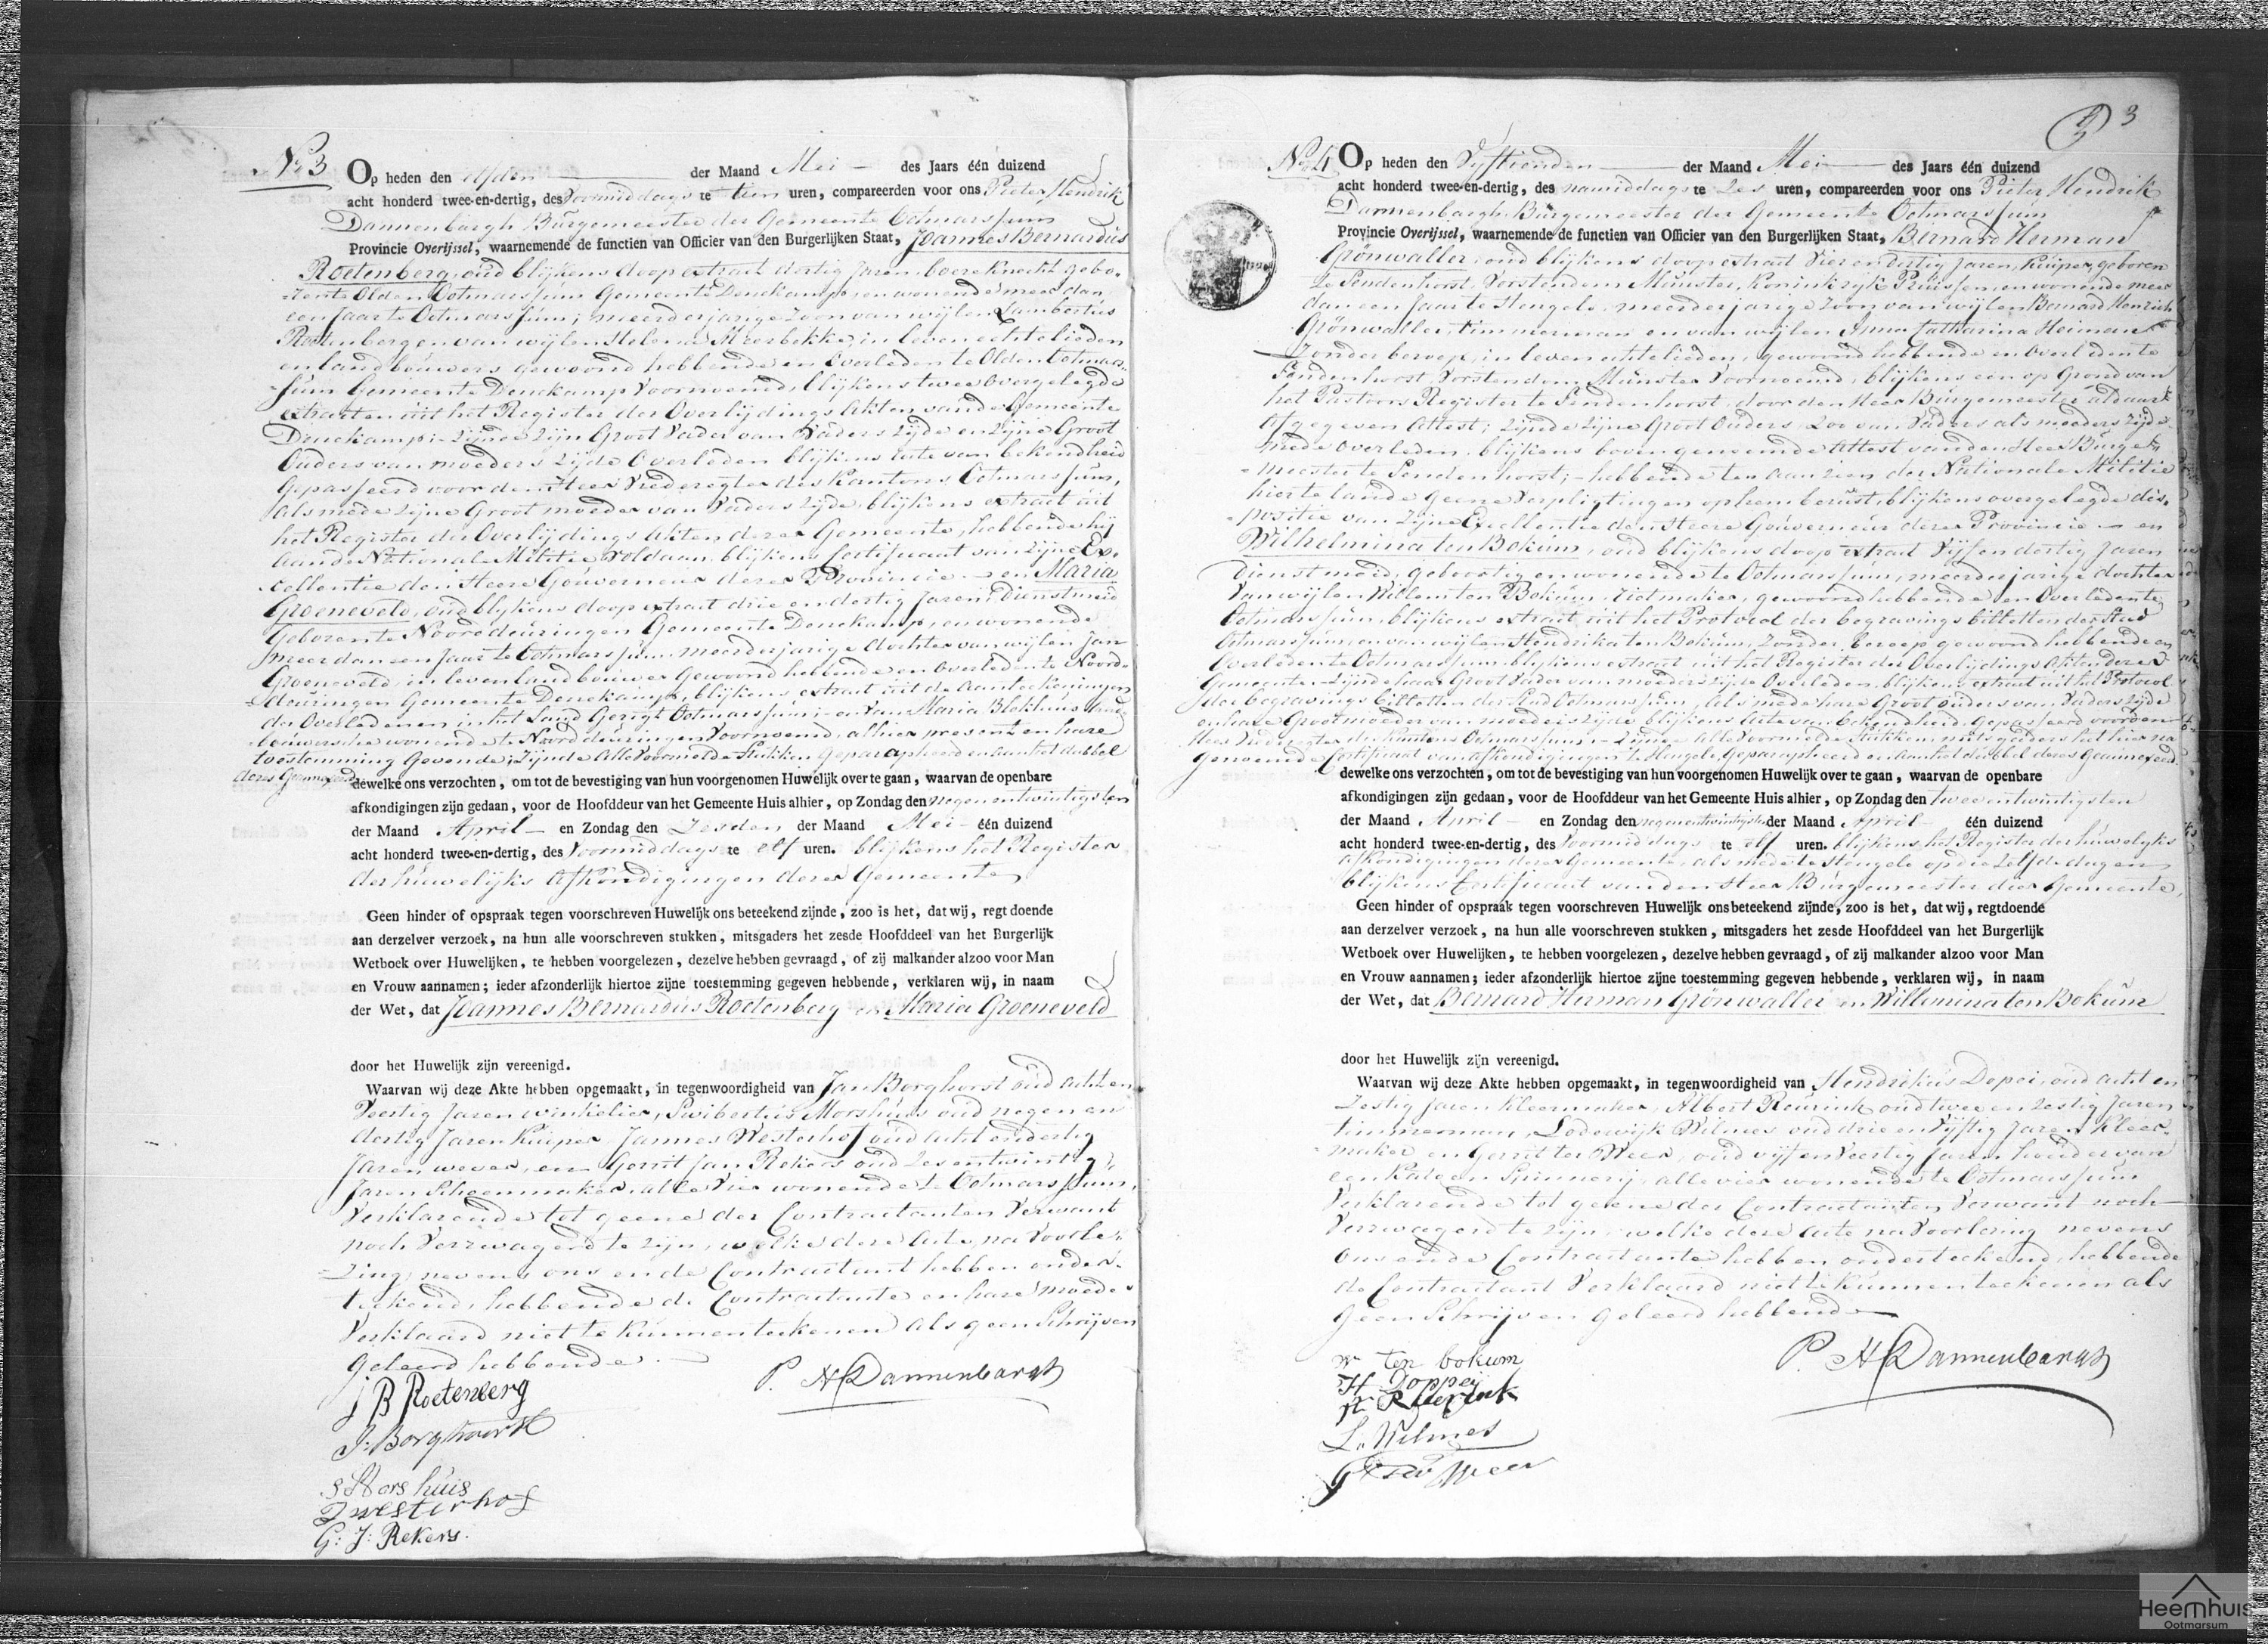 No 3
Op heden den elfden der Maand Mei des Jaars één duizend
acht honderd twee-en-dertig, des Voormiddags te tien uren, compareerden voor ons Pieter Hendrik
Dannenbargh Burgemeester der Gemeente Ootmarssum
Provincie Overijssel, waarnemende de functien van Officier van den Burgerlijken Staat, Joannes Bernardus
Roetenberg, oud blijkens doop extract dertig Jaren, boereknecht, gebo-
ren te Olden Ootmarssum Gemeente Denekamp, en wonende meer dan
een Jaar te Ootmarssum; meerderjarige Zoon van wijlen Lambertus
Roetenberg en van wijlen Helena Meerbekke, in leven echtelieden
en landbouwers gewoond hebbende en Overleden te Olden Ootmars-
sum Gemeente Denekamp Voornoemd, blijkens twee Overgelegde
extracten uit het Register der Overlijdings Akten van de Gemeente
Denekamp; zijnde zijn Groot Vader van Vaders zijde en zijne Groot
Ouders van moeders zijde Overleden blijkens acte van bekendheid
gepasseerd voor den Heer Vrederegter des Kantons Ootmarssum,
als mede zijne Groot moeder van Vaders zijde, blijkens extract uit
het Register der Overlijdings Akten dezer Gemeente, hebbende hij
aan de Nationale Militie Voldaan blijkens Certificaat van Zijne Ex-
cellentie den Heere Gouverneur dezer Provincie - en Maria
Groeneveld, oud blijkens doop extract drie en dertig Jaren, Dienstmeid
Geboren te Noorddeuringen Gemeente Denekamp, en wonende
meer dan een Jaar te Ootmarssum, meerderjarige dochter van wijlen Jan
Groeneveld, in leven landbouwer Gewoond hebbende en overleden te Noord-
deuringen Gemeente Denekamp, blijkens extract uit de Aanteekeningen
der Overledenen in het Land Gerigt Ootmarssum; en van Maria Blokhuis land-
bouwersche wonende te Noorddeuringen Voornoemd, alhier present en hare
toestemming Gevende; Zijnde Alle Voormelde Stukken Geparapheerd en aan het dubbel
dezes Geannexeerd
dewelke ons verzochten, om tot de bevestiging van hun voorgenomen Huwelijk over te gaan, waarvan de openbare
afkondigingen zijn gedaan, voor de Hoofddeur van het Gemeente Huis alhier, op Zondag den negen en twintigsten
der Maand April en Zondag den Zesden der Maand Mei één duizend
acht honderd twee-en-dertig, des Voormiddags te elf uren. blijkens het Register
der huwelijks Afkondigingen dezer Gemeente
Geen hinder of opspraak tegen voorschreven Huwelijk ons beteekend zijnde, zoo is het, dat wij, regt doende
aan derzelver verzoek, na hun alle voorschreven stukken, mitsgaders het zesde Hoofddeel van het Burgerlijk
Wetboek over Huwelijken, te hebben voorgelezen, dezelve hebben gevraagd, of zij malkander alzoo voor Man
en Vrouw aannamen; ieder afzonderlijk hiertoe zijne toestemming gegeven hebbende, verklaren wij, in naam
der Wet, dat Joannes Bernardus Roetenberg en Maria Groeneveld
door het Huwelijk zijn vereenigd.
Waarvan wij deze Akte hebben opgemaakt, in tegenwoordigheid van Jan Borghorst oud acht en
Veertig Jaren winkelier, Swibertus Morshuis oud negen en
dertig Jaren Kuiper, Jannes Westerhof oud acht en dertig
Jaren wever, en Gerrit Jan Rekers oud Zes en twintig
Jaren Schoenmaker, alle Vier wonende te Ootmarssum,
Verklarende tot geene der Contractanten Verwant
noch Verzwagerd te zijn, welke deze Acte, na Voorle-
zing, nevens ons en de Contractant hebben onder-
teekend, hebbende de Contractante en hare moeder
Verklaard niet te kunnen teekenen als geen Schrijven
geleerd hebbende.
P. H Dannenbargh
J B Roetenberg
J: Borghorst
S Morshuis
J westerhof
G: J: Rekers.
3 3
No 4
Op heden den Vijftienden der Maand Mei des Jaars één duizend
acht honderd twee-en-dertig, des namiddags te Zes uren, compareerden voor ons Pieter Hendrik
Dannenbargh Burgemeester der Gemeente Ootmarssum
Provincie Overijssel, waarnemende de functien van Officier van den Burgerlijken Staat, Bernard Herman
Grönwaller, oud blijkens doop extract Vier en dertig Jaren, Kuiper, geboren
te Sendenhorst, Vorstendom Munster, Koninkrijk Pruissen, en wonende meer
dan een Jaar te Hengelo, meerderjarige Zoon van wijlen Bernard Henrich
Grönwaller timmerman en van wijlen Anna Catharina Heiman
Zonder beroep, in leven echtelieden, gewoond hebbende en Overleden te
Sendenhorst, Vorstendom Munster Voornoemd, blijkens een op Grond van
het Pastoors Register te Sendenhorst, door den Heer Burgemeester aldaar
afgegeven Attest; zijnde zijne Groot Ouders, Zoo van Vaders als moeders zijde
mede overleden, blijkens bovengenoemde Attest van den Heer Burge-
meester te Sendenhorst; hebbende ten aanzien der Nationale Militie
hier te lande geene Verpligtingen op hem berust, blijkens overgelegde dis-
positie van Zijne Excellentie den Heere Gouverneur dezer Provincie - en
Wilhelmina ten Bokum, oud blijkens doop extract Vijf en dertig Jaren
Dienstmeid, geboortig en wonende te Ootmarssum, meerderjarige dochter
van wijlen Willem ten Bokum, gewoond hebbende en Overleden te
Ootmarssum, blijkens extract uit het Protocol der begravings billetten der Stad
Ootmarssum, en van wijlen Hendrika ten Bokum, Zonder beroep gewoond hebbende en
Overleden te Ootmarssum, blijkens extract uit het Register der Overlijdings Akten dezer
Gemeente. Zijnde haar Groot Vader van moeders zijde Overleden blijkens extract uit het Protocol
der begravings billetten der Stad Ootmarssum, als mede hare Groot ouders van Vaders zijde
en hare Grootmoeder van moeders zijde blijkens acte van bekendheid, gepasseerd voor den
Heer Vrederegter des Kantons Ootmarssum; Zijnde alle Voormelde Stukken, mitsgaders het hier na
genoemde Certificaat van afkondigingen te Hengelo, Geparapheerd en aan het dubbel dezes Geannexeerd.
dewelke ons verzochten, om tot de bevestiging van hun voorgenomen Huwelijk over te gaan, waarvan de openbare
afkondigingen zijn gedaan, voor de Hoofddeur van het Gemeente Huis alhier, op Zondag den twee en twintigsten
der Maand April en Zondag den negenentwintigsten der Maand April één duizend
acht honderd twee-en-dertig, des Voormiddags te elf uren. blijkens het Register der huwelijks
afkondigingen dezer Gemeente, als mede te Hengelo op die zelfde dagen
blijkens Certificaat van den Heer Burgemeester dier Gemeente,
Geen hinder of opspraak tegen voorschreven Huwelijk ons beteekend zijnde, zoo is het, dat wij, regtdoende
aan derzelver verzoek, na hun alle voorschreven stukken, mitsgaders het zesde Hoofddeel van het Burgerlijk
Wetboek over Huwelijken, te hebben voorgelezen, dezelve hebben gevraagd, of zij malkander alzoo voor Man
en Vrouw aannamen; ieder afzonderlijk hiertoe zijne toestemming gegeven hebbende, verklaren wij, in naam
der Wet, dat Bernard Herman Grönwaller en Willemina ten Bokum
door het Huwelijk zijn vereenigd.
Waarvan wij deze Akte hebben opgemaakt, in tegenwoordigheid van Hendrikus Dopei, oud acht en
Zestig Jaren Kleermaker, Albert Reurink oud twee en Zestig Jaren
timmerman, Lodewijk Wilmes oud drie en Vijftig Jaren Kleer-
maker en Gerrit ter Weer, oud vijf en Veertig Jaren houder van
een Katoen Spinnerij, alle vier wonende te Ootmarssum
Verklarende tot geene der Contractanten Verwant noch
Verzwagerd te zijn, welke deze Acte na Voorlezing nevens
ons en de Contractante hebben onderteekend, hebbende
de Contractant Verklaard niet te kunnen teekenen als
geen Schrijven geleerd hebbende
P. H Dannenbargh
W ten bokum
H Doppei
L. Wilmes
G ter Weer
Heemhuis
Ootmarsum